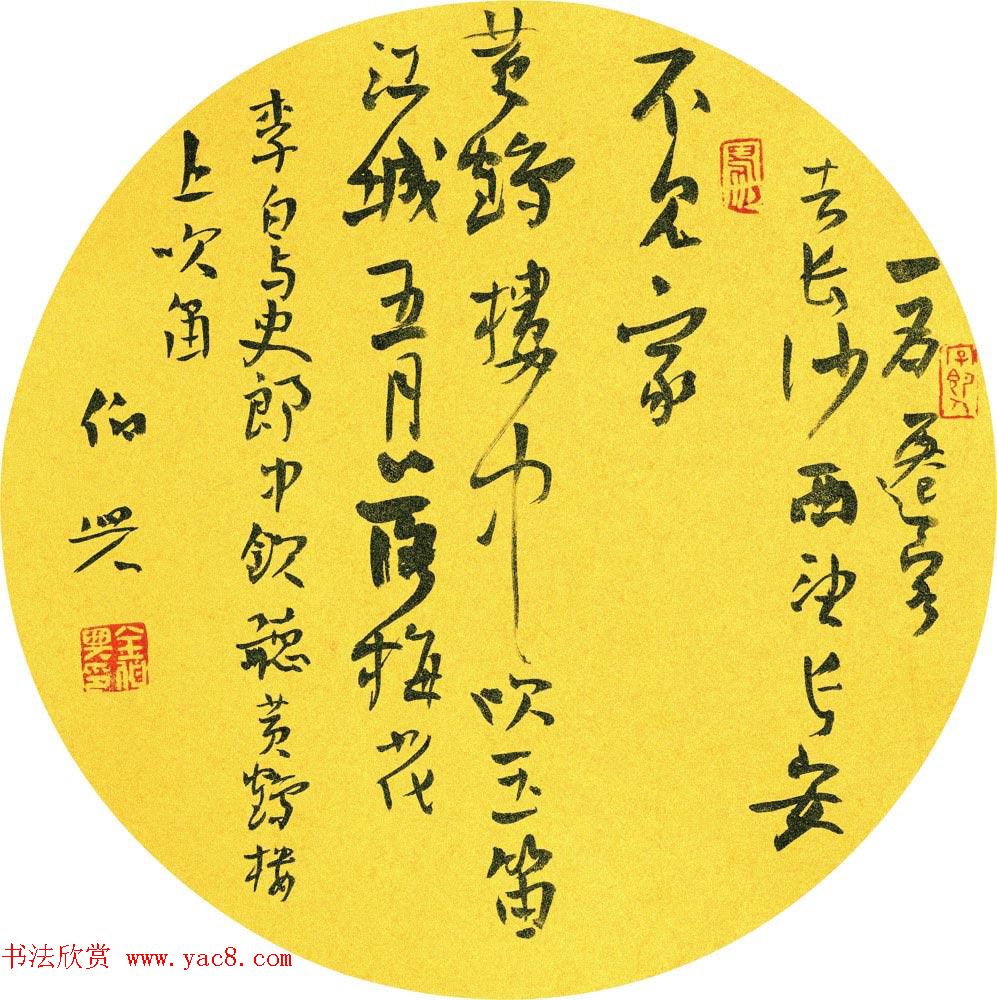 一为遷客
去长沙西望长安
不见家
黄鶴樓中吹玉笛
江城五月落梅花
李白与史郎中飲聽黄鶴楼
上吹笛
伯兴
金伯興印
书法欣赏 www.yac8.com